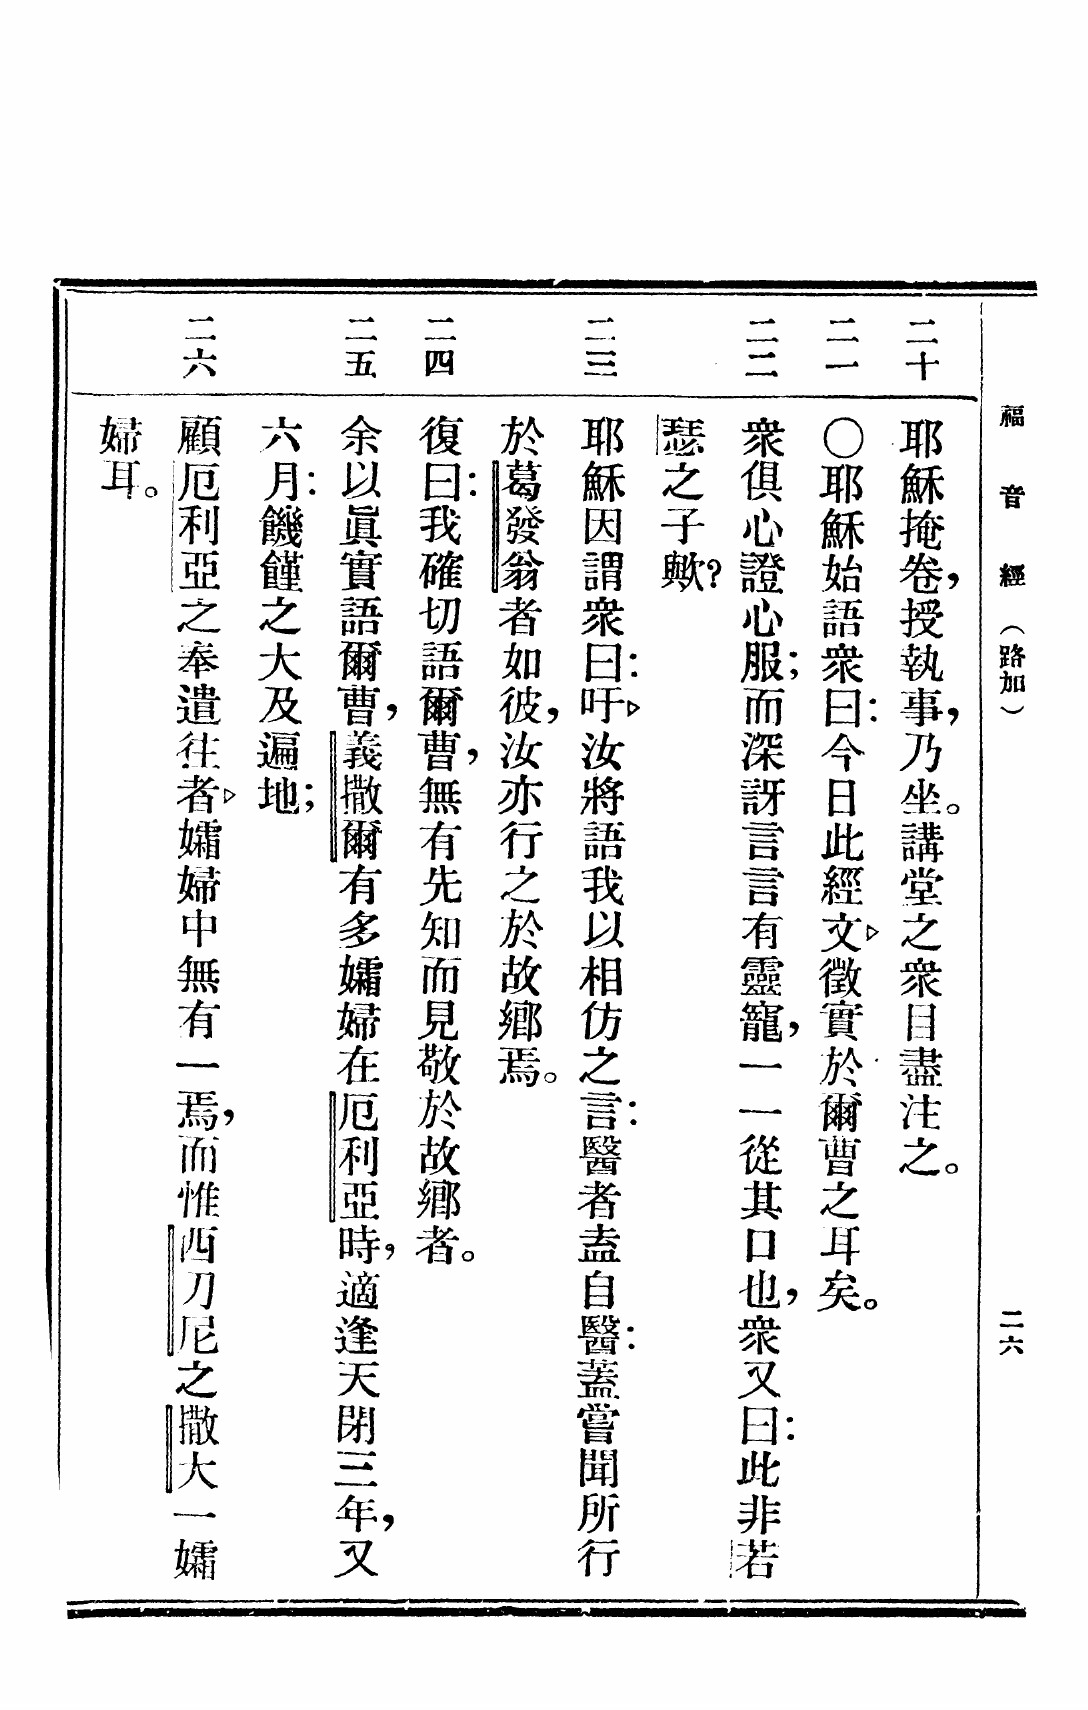 福音經（路加） 二六
二十 耶穌掩卷，授執事，乃坐。講堂之衆目盡注之。
二一 〇耶穌始語衆曰：今日此經文▷徵實於爾曹之耳矣。
二二 衆俱心證心服；而深訝言言有靈寵，一一從其口也，衆又曰：此非若
瑟之子歟？
二三 耶穌因謂衆曰：吁▷汝將語我以相仿之言：醫者盍自醫：蓋嘗聞所行
於葛發翁者如彼，汝亦行之於故鄉焉。
二四 復曰：我確切語爾曹，無有先知而見敬於故鄉者。
二五 余以眞實語爾曹，義撒爾有多孀婦在厄利亞時，適逢天閉三年，又
六月：饑饉之大及遍地；
二六 顧厄利亞之奉遣往者▷孀婦中無有一焉，而惟西刀尼之撒大一孀
婦耳。